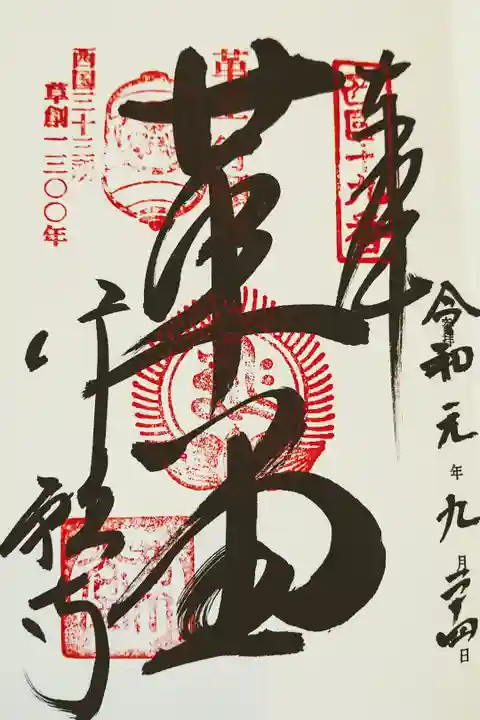 令和元年九月二十四日
奉拝
西国十九番
革堂
西国三十三所
草創一三〇〇年
行願寺